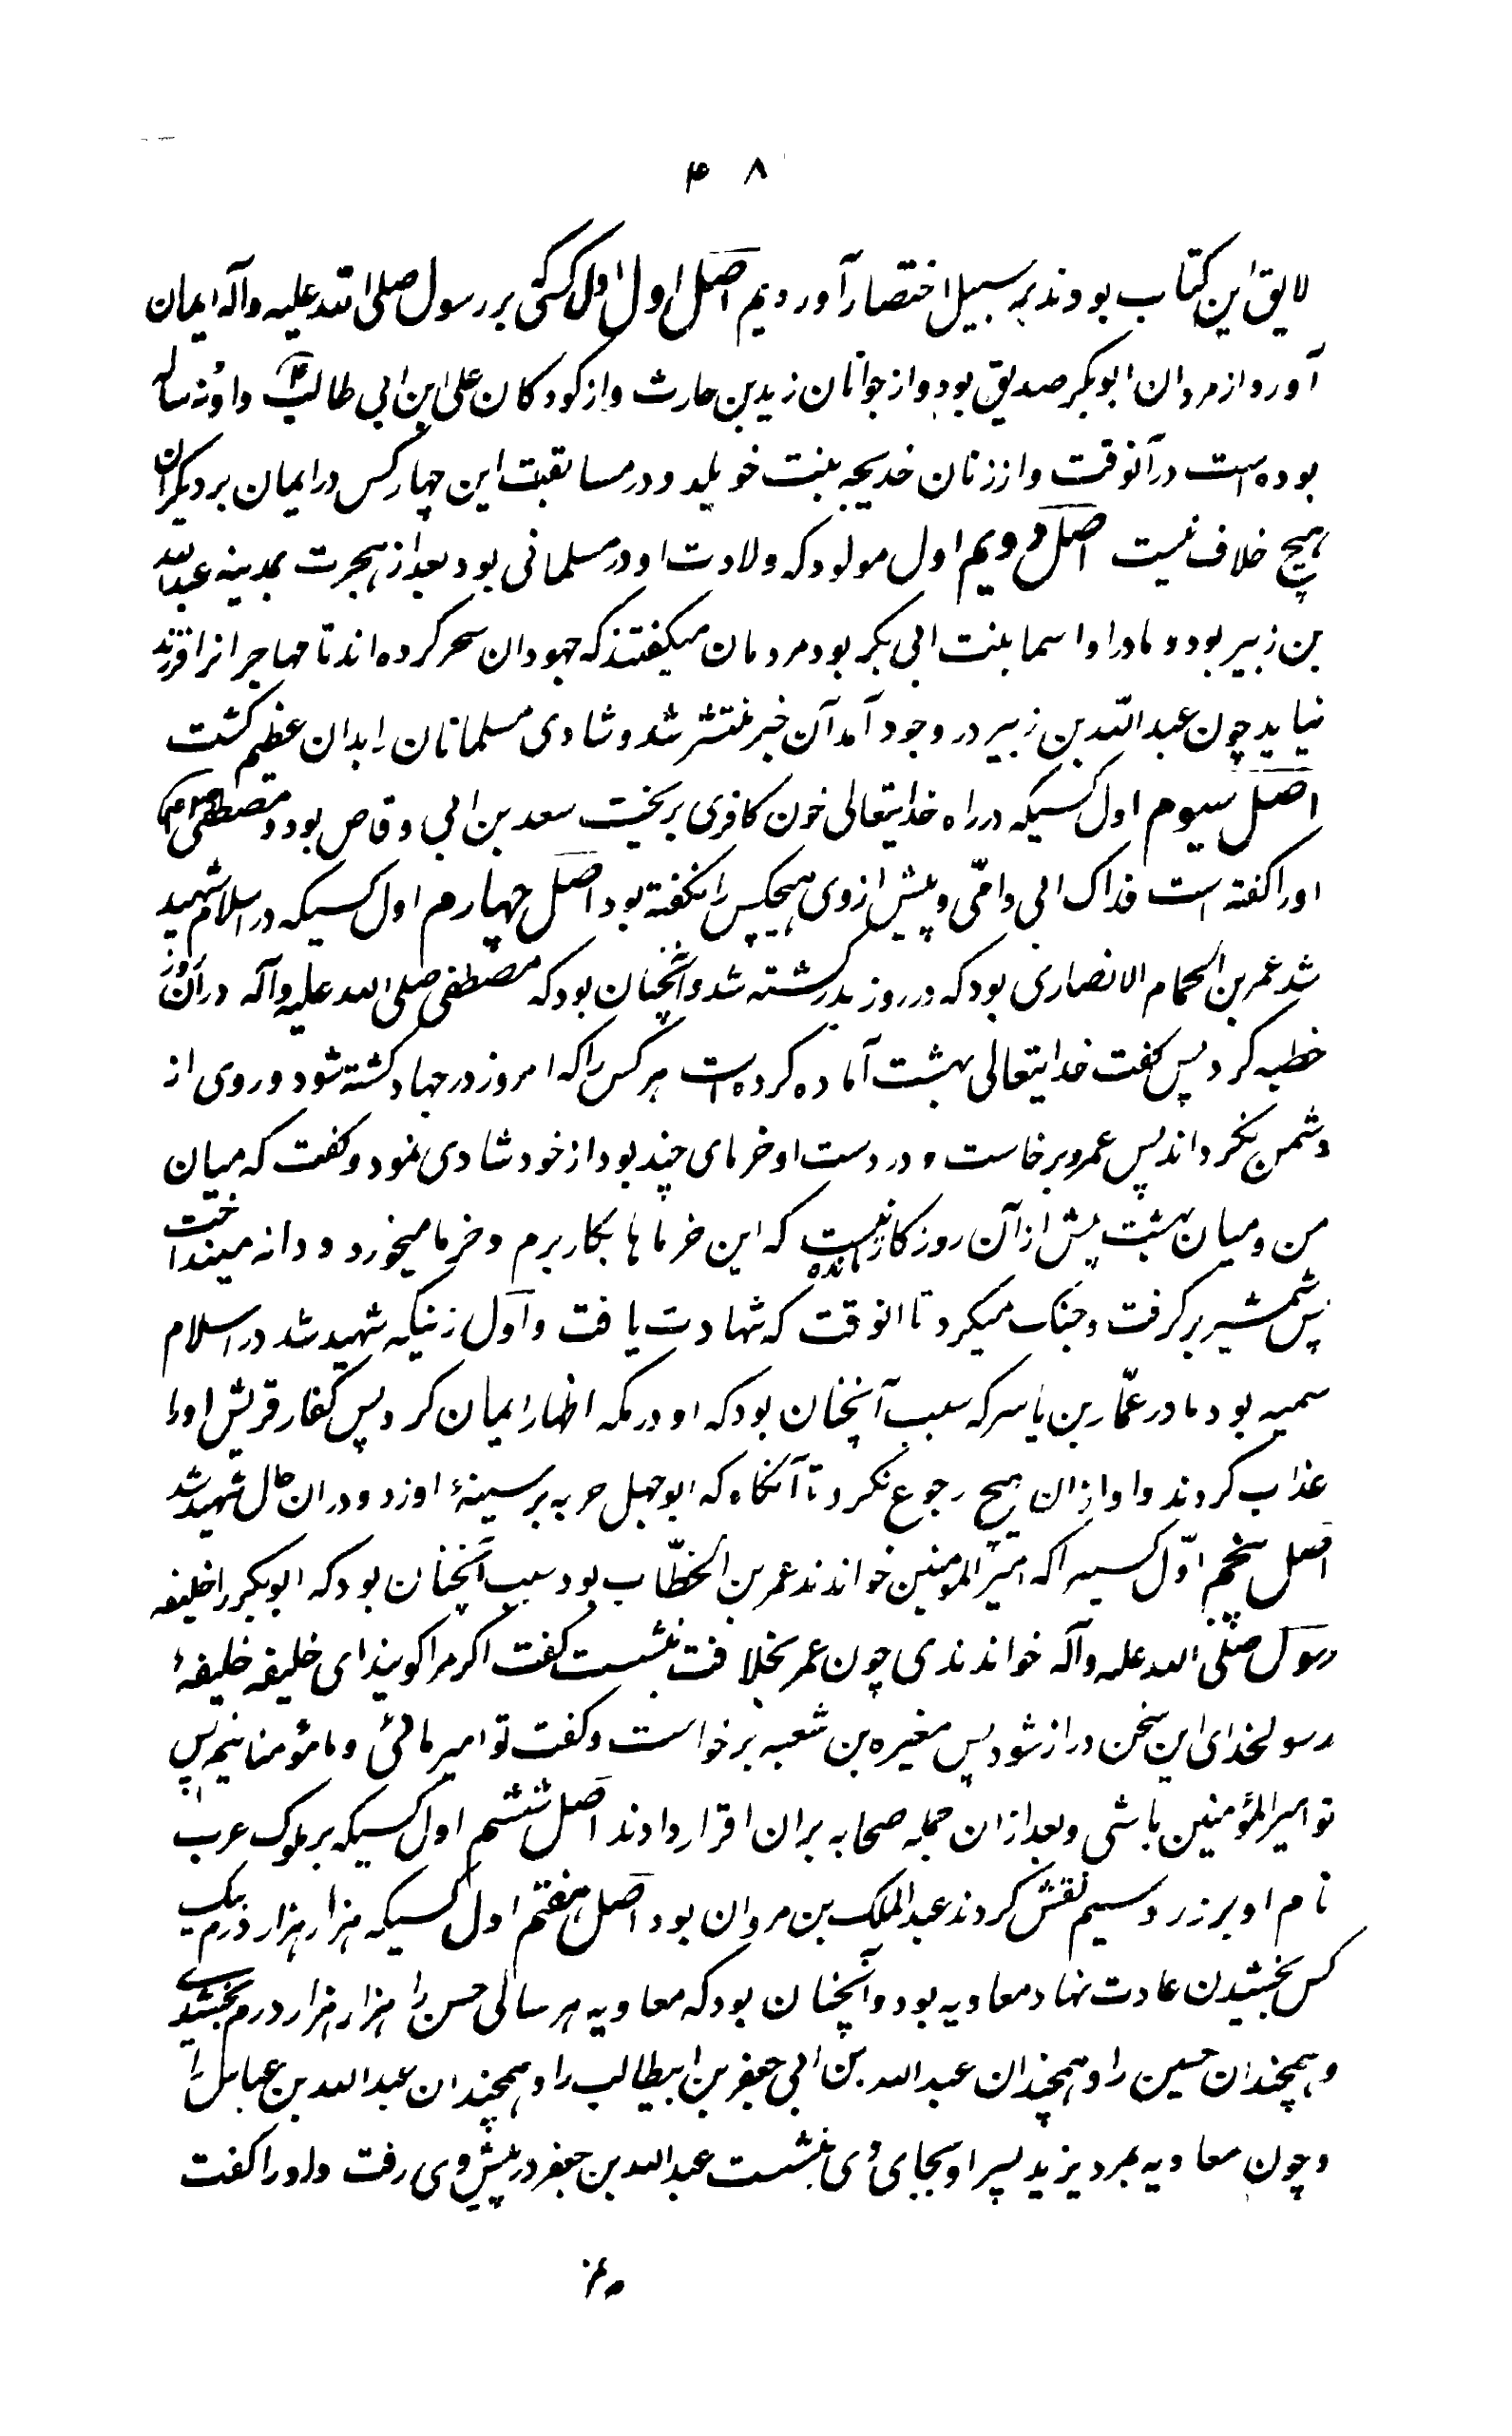 ۴۸
لایق این کتاب بودند بر سبیل اختصار آوردیم اصل اول اول کسی که بر رسول صلی الله علیه وآله ایمان
آورد از مردان ابوبکر صدیق بود و از جوانان زید بن حارث و از کودکان علی ابن ابی طالب و او نه ساله
بوده است در آنوقت و از زنان خدیجه بنت خویلد و در مسابقت این چهار کس در ایمان بر دیکران
هیچ خلاف نیست اصل دویم اول مولود که ولادت او در مسلمانی بود بعد از هجرت بمدینه عبدالله
بن زبیر بود و مادر او اسما بنت ابی بکر بود مردمان میکفتند که جهودان سحر کرده اند تا مهاجرانرا فرزند
نیاید چون عبدالله بن زبیر در وجود آمد آن خبر منتشر شد و شادی مسلمانان بدان عظیم کشت
اصل سیوم اول کسیکه در راه خدایتعالی خون کافری بریخت سعد بن ابی وقاص بود و مصطفی
اورا کفته است فداک ابی وامّی و پیش از وی هیچکس را نکفته بود اصل چهارم اول کسیکه در اسلام شهید
شد عمر بن الحمام الانصاری بود که در روز بدر کشته شد و آنچنان بود که مصطفی صلی الله علیه وآله در آن روز
خطبه کرد پس کفت خدایتعالی بهشت آماده کرده است هر کس را که امروز در جهاد کشته شود و روی از
دشمن نکرداند پس عمرو برخاست و در دست او خرمای چند بود از خود شادی نمود و کفت که میان
من و میان بهشت بیش از آن روزکار نمانده است که این خرماها بکار برم و خرما میخورد و دانه میانداخت
پس شمشیر برکرفت و جنک میکرد تا انوقت که شهادت یافت و اول زنیکه شهید شد در اسلام
سمیه بود مادر عمّار بن یاسر که سبب آنچنان بود که او در مکه اظهار ایمان کرد پس کفار قریش اورا
عذاب کردند و او از ان هیچ رجوع نکرد تا آنکاه که ابوجهل حربه بر سینهٔ او زد و در ان حال شهید شد
اصل پنجم اوّل کسیرا که امیرالمومنین خواندند عمر بن الخطّاب بود سبب آنچنان بود که ابوبکر را خلیفه
رسول صلی الله علیه وآله خواندندی چون عمر بخلافت بنشست کفت اکر مرا کویند ای خلیفه خلیفهٔ
رسولخدای این سخن دراز شود پس مغیره بن شعبه برخواست و کفت تو امیر مائی و ما مؤمنانیم پس
تو امیرالمؤمنین باشی و بعد از ان جمله صحابه بر ان اقرار دادند اصل ششم اول کسیکه بر ملوک عرب
نام او بر زر و سیم نقش کردند عبدالملک بن مروان بود اصل هفتم اول کسیکه هزار هزار درم بیک
کس بخشیدن عادت نهاد معاویه بود و آنچنان بود که معاویه هر سالی حسن را هزار هزار درم بخشیدی
و همچندان حسین را و همچندان عبدالله بن ابی جعفر بن ابیطالب را و همچندان عبدالله بن عباس را
و چون معاویه بمرد یزید پسر او بجای وی بنشست عبدالله بن جعفر در پیش وی رفت و اورا کفت